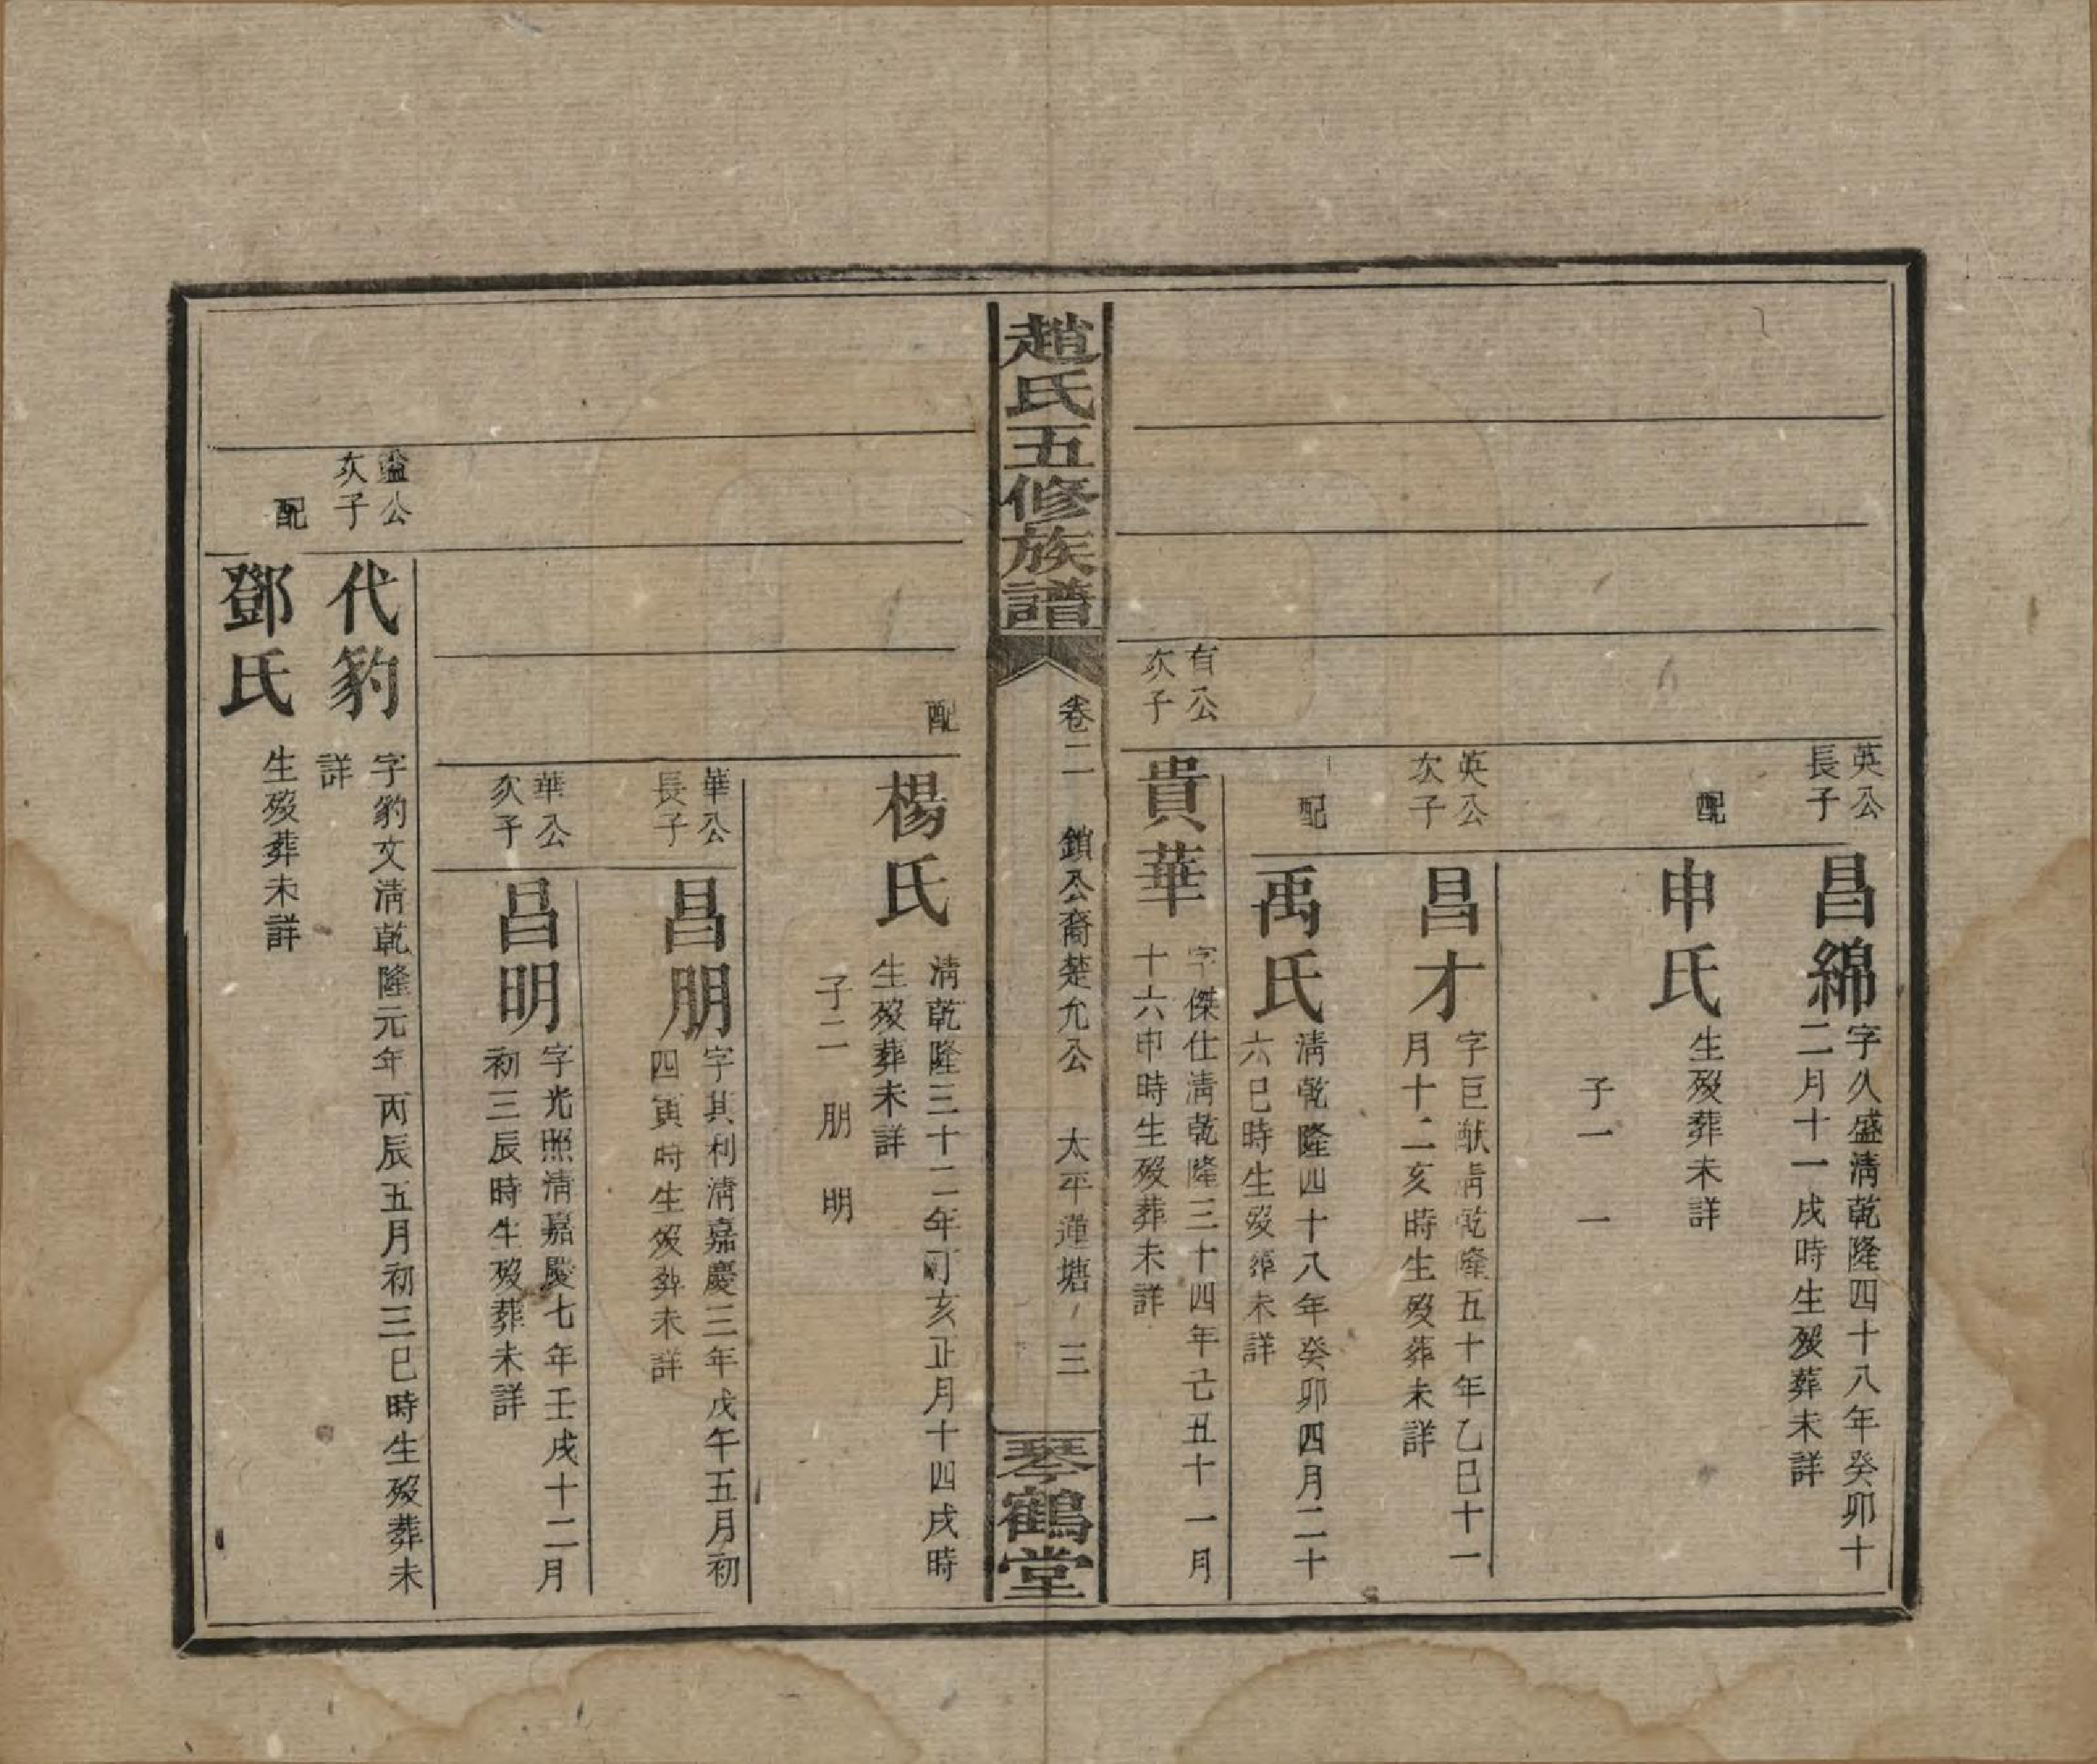 英公
長子
昌綿
字久盛淸乾隆四十八年癸卯十
二月十一戌時生歿葬未詳
配
申氏
生歿葬未詳
子一　一
英公
次子
昌才
字巨猷淸乾隆五十年乙巳十一
月十二亥時生歿葬未詳
配
禹氏
淸乾隆四十八年癸卯四月二十
六巳時生歿葬未詳
有公
次子
貴華
字傑仕淸乾隆三十四年己丑十一月
十六申時生歿葬未詳
趙氏五修族譜
卷二　鎖公裔楚允公　太平蓮塘　三
琴鶴堂
配
楊氏
淸乾隆三十二年丁亥正月十四戌時
生歿葬未詳
子二　朋　明
華公
長子
昌朋
字其利淸嘉慶三年戊午五月初
四寅時生歿葬未詳
華公
次子
昌明
字光照淸嘉慶七年壬戌十二月
初三辰時生歿葬未詳
鎰公
次子
代豹
字豹文淸乾隆元年丙辰五月初三巳時生歿葬未
詳
配
鄧氏
生歿葬未詳